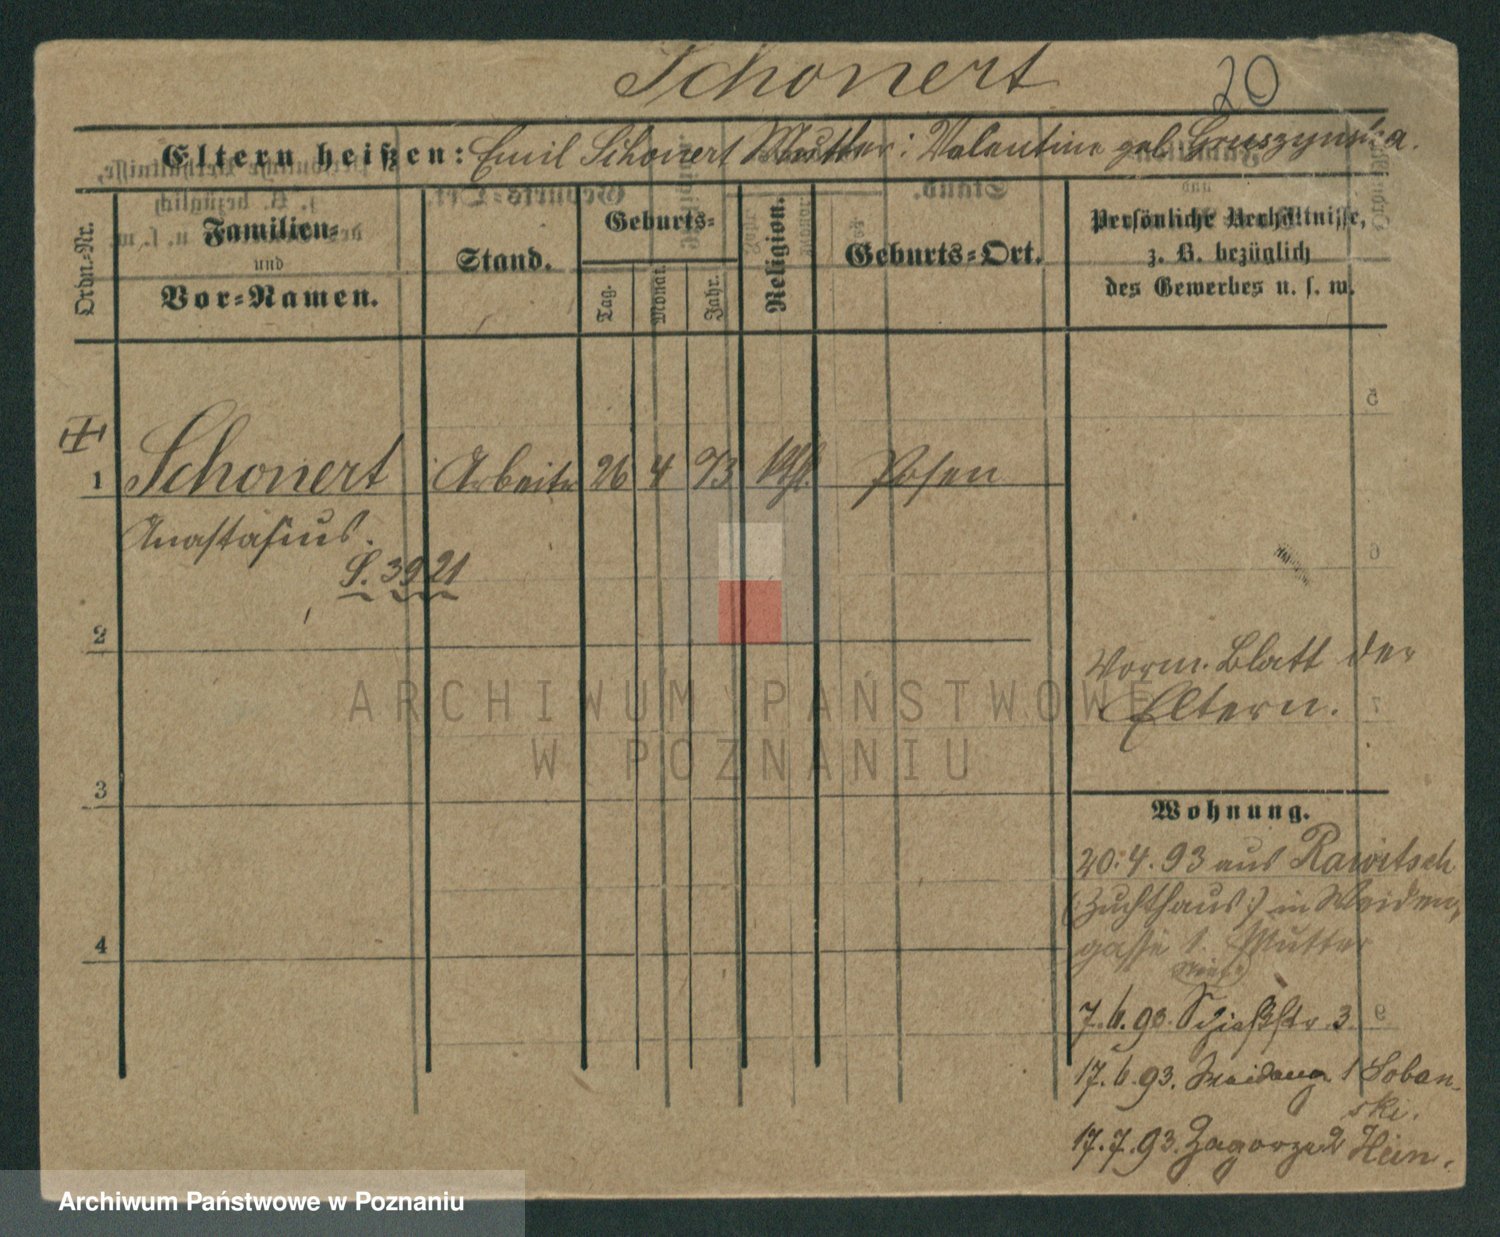 Schonert
20
Eltern heißen: Emil Schonert Mutter: Valentine geb Gruszynska.
Ordn.-Nr.
Familien-
und
Vor-Namen.
Stand.
Geburts-
Tag.
Monat.
Jahr.
Religion.
Geburts-Ort.
Persönliche Verhältnisse,
z. B. bezüglich
des Gewerbes u. s. w.
1 Schonert Arbeiter 26 4 73 kth. Posen
Anastasius.
S. 3921
2
Vorm. Blatt der
Eltern.
3
Wohnung.
20.4.93 aus Rawitsch
(:Zuchthaus:) in Weiden-
4
gasse 1. Mutter
7.6.93. Schießstr. 3.
17.6.93. Weideng. 1 Soban-
ski.
17.7.93. Zagorze 2 Hein.
ARCHIWUM PAŃSTWOWE
W POZNANIU
Archiwum Państwowe w Poznaniu